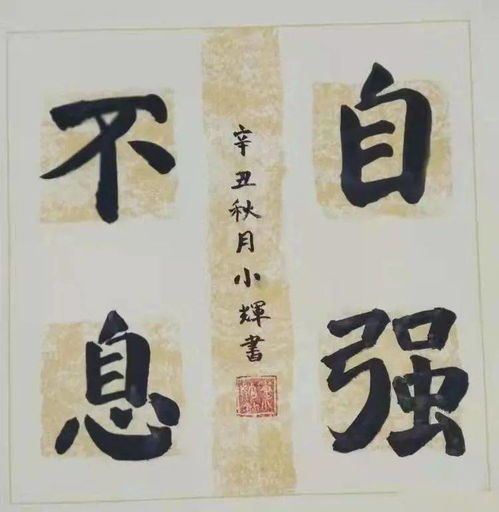 自强
不息
辛丑秋月小輝書